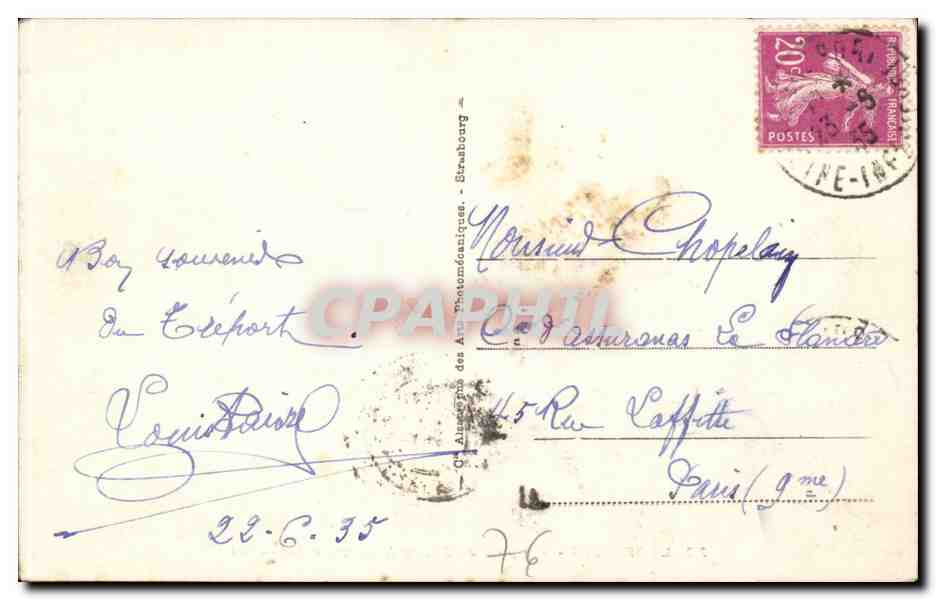 Bon souvenir
du Tréport.
Louis
22-6.35
Cie Alsacienne des Arts Photomécaniques. - Strasbourg
20c
REPUBLIQUE FRANÇAISE
POSTES
INE-INF
Monsieur Chopelain
Cie d'Assurances La
45 Rue Laffitte
Paris (9me)
76
CPAPHIL